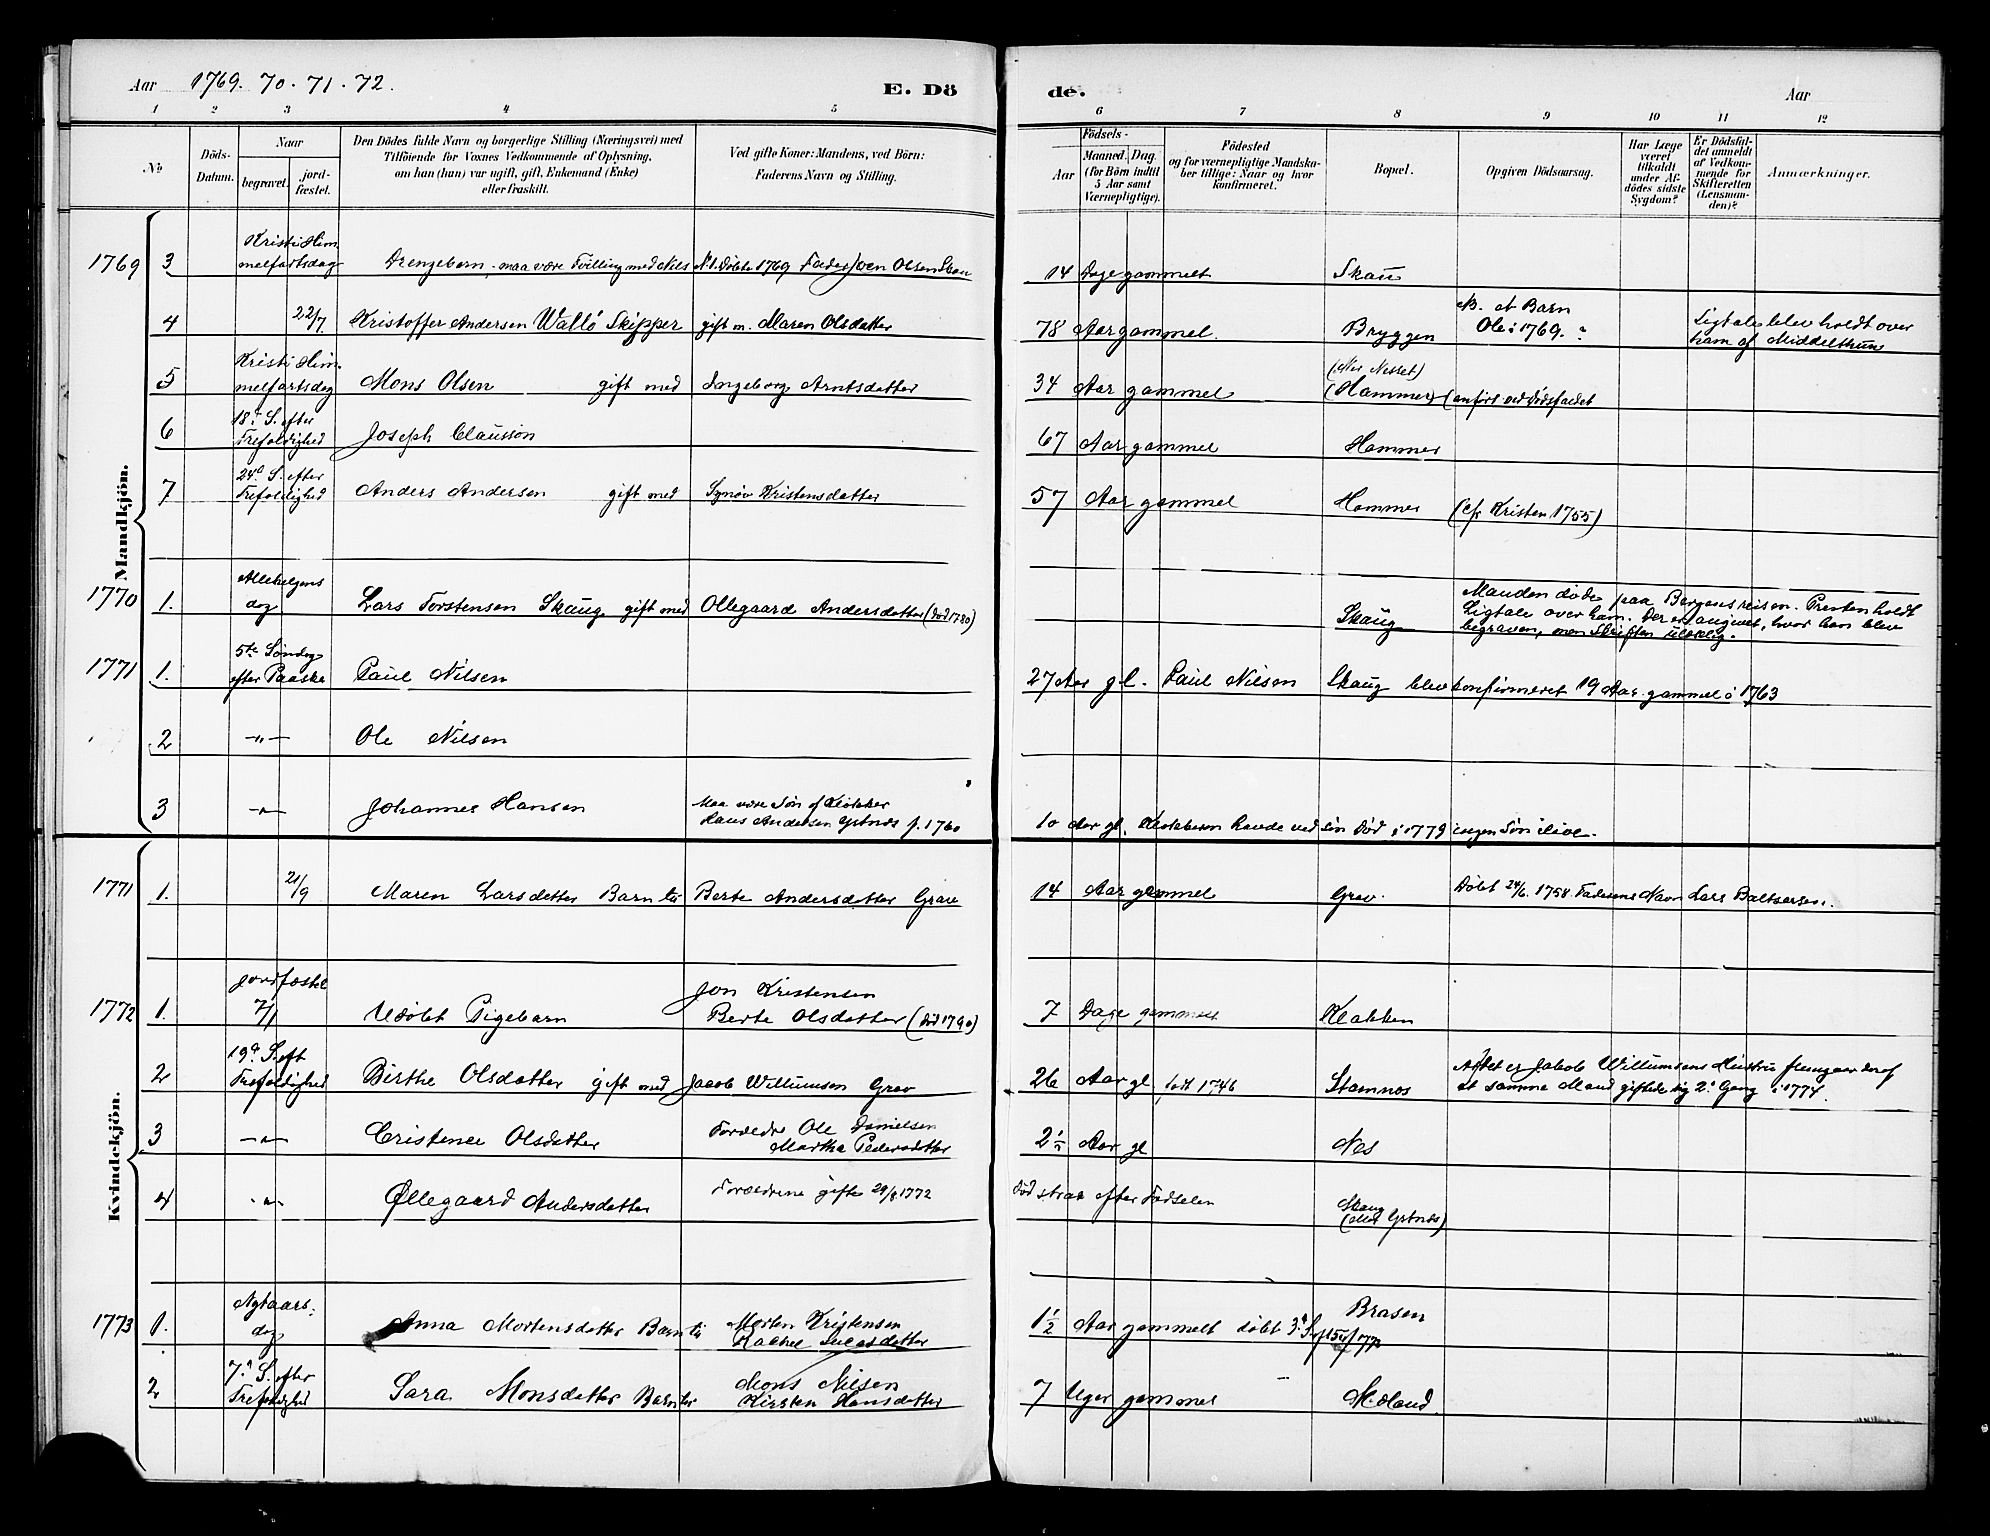 Aar 1769. 70. 71. 72.
E. Dö
de.
Aar
1 2 3 4 5
6 7 8 9 10 11 12
No
Döds-
Datum.
Naar
begravet.
jord-
fæstet.
Den Dödes fulde Navn og borgerlige Stilling (Næringsvei) med
Tilföiende for Voxnes Vedkommende af Oplysning,
om han (hun) var ugift, gift, Enkemand (Enke)
eller fraskilt.
Ved gifte Koner: Mandens, ved Börn:
Faderens Navn og Stilling.
Födsels-
Aar
Maaned. Dag.
(for Börn indtil
5 Aar samt
Værnepligtige).
Födested
og for værnepligtige Mandska-
ber tillige: Naar og hvor
konfirmeret.
Bopæl.
Opgiven Dödsaarsag.
Har Læge
været
tilkaldt
under Af-
dödes sidste
Sygdom?
Er Dödsfal-
det anmeldt
af Vedkom-
mende for
Skifteretten
(Lensman-
den)?
Anmærkninger.
Mandkjön.
1769 3 Kristi Him-
melfartsdag Drengebarn, maa være Tvilling med Nils N. 1. Døbte 1769 Fader Iven Olsen Skau 14 Dage gammelt Skau
4 22/7 Kristoffer Andersen Wallö Skipper gift m. Maren Olsdatter 78 Aar gammel. Bryggen
NB. et Barn
Ole i 1769.
Ligtale blev holdt over
ham af Middelthun
5 Kristi Him-
melfartsdag Mons Olsen gift med Ingeborg Arntsdatter 34 Aar gammel (Hammer) (anfört ved Dødsfaldet
6 18d S. efter
Trefoldighed Joseph Clausson 67 Aar gammel Hammer
7 24d S. efter
Trefoldighed Anders Andersen gift med Synøv Kristensdatter 57 Aar gammel Hammer (cfr Kristen 1755)
1770 1. Allehelgens
dag Lars Torstensen Skaug gift med Ollegaard Andersdatter (död 1780) Skaug
Manden døde paa Bergensreisen. Presten holdt
Ligtale over ham. Der er angivet, hvor han blev
begraven, men Skriften ulæselig.
1771 1. 5te Søndag
efter Paaske Paul Nilsen 27 Aar gl. Paul Nilsen Skaug blev konfirmeret 19 Aar gammel i 1763
2 -„- Ole Nilsen
3 -„- Johannes Hansen
Maa være Søn af Klokker
Hans Andersen Ystnæs f. 1760
10 Aar gl. Klokkeren havde ved sin Död i 1779 ingen Søn ilive.
Kvindekjön.
1771 1. 21/9 Maren Larsdatter Barn til Berte Andersdatter Grav 14 Aar gammel Grav. Døbt 24/6 1758 Faderens Navn Lars Baltsersen.
1772 1. jordfæstet
7/1 Udøbt Pigebarn
Jon Kristensen
Berte Olsdatter (död 1790)
7 Dage gammelt Klakken
2 19d S. eft
Trefoldighed Birthe Olsdatter gift med Jacob Willumsen Grav 26 Aar gl født 1746 Stamnes
At det er Jakob Willumsens Hustru fremgaar deraf
at samme Mand giftede sig 2d Gang i 1774.
3 -„- Cristence Olsdatter
Forældre Ole Danielsen
Martha Pedersdatter
2½ Aar gl Nes
4 -„- Øllegaard Andersdatter Forældrene gifte 29/9 1772 död strax efter Fødselen
Skaug
(eller Ystnæs)
1773 1. Nytaars-
dag Anna Mortensdatter Barn til
Morten Kristensen
Rachel Lucasdatter
1½ Aar gammelt døbt 3d S. Brasen
2 7d S. efter
Trefoldighed Sara Monsdatter Barn til
Mons Nilsen
Kirsten Hansdatter
7 Uger gammel Meland.